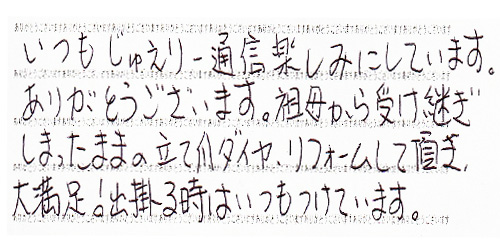 いつもじゅえりー通信楽しみにしています。
ありがとうございます。祖母から受け継ぎ
しまったままの立て爪ダイヤ、リフォームして頂き、
大満足！出掛る時はいつもつけています。